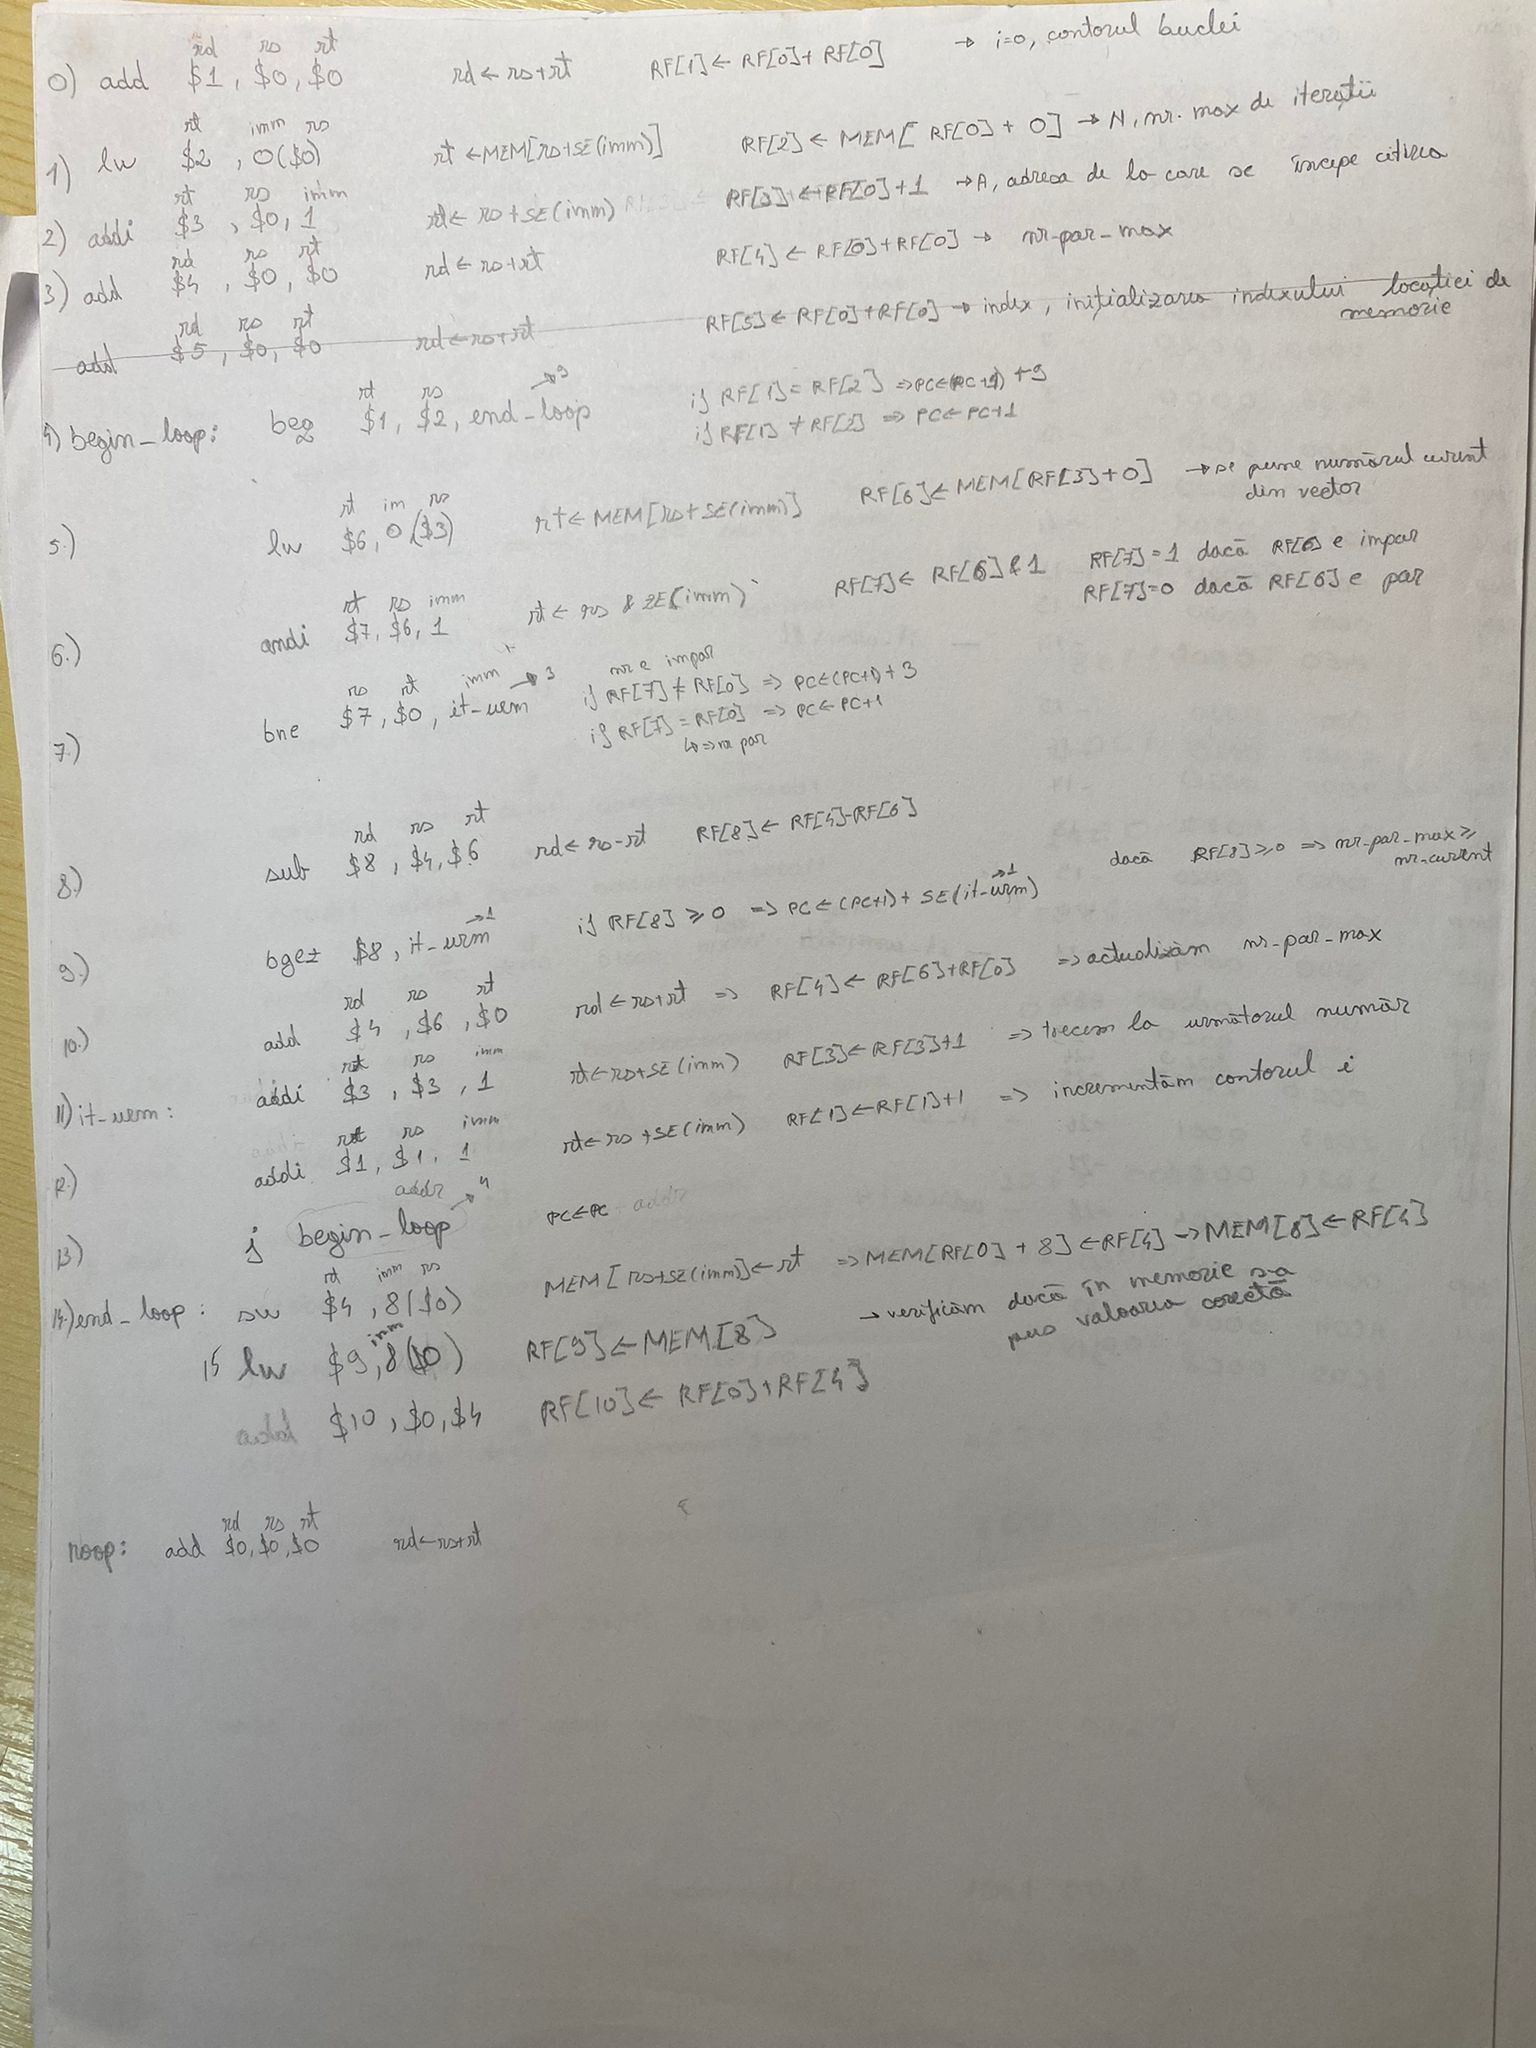 rd rs rt
0) add $1, $0, $0 rd ← rs+rt RF[1] ← RF[0]+RF[0] → i=0, contorul buclei
rt imm rs
1) lw $2, 0($0) rt ← MEM[rs+SE(imm)] RF[2] ← MEM[RF[0]+0] → N, nr. max de iterații
rt rs imm
2) addi $3, $0, 1 rt ← rs+SE(imm) RF[3] ← RF[0]+1 → A, adresa de la care se începe citirea
rd rs rt
3) add $4, $0, $0 rd ← rs+rt RF[4] ← RF[0]+RF[0] → nr-par-max
rd rs rt
add $5, $0, $0 rd ← rs+rt RF[5] ← RF[0]+RF[0] → index, inițializarea indexului locației de
memorie
rt rs → 9
4) begin_loop: beq $1, $2, end_loop if RF[1] = RF[2] => PC ← (PC+1) +9
if RF[1] ≠ RF[2] => PC ← PC+1
rt im rs
5.) lw $6, 0($3) rt ← MEM[rs+SE(imm)] RF[6] ← MEM[RF[3]+0] → se pune numărul curent
din vector
rt rs imm
6.) andi $7, $6, 1 rt ← rs & ZE(imm) RF[7] ← RF[6] & 1 RF[7]=1 dacă RF[6] e impar
RF[7]=0 dacă RF[6] e par
nr e impar
rs rt imm → 3
7.) bne $7, $0, it-urm if RF[7] ≠ RF[0] => PC ← (PC+1)+3
if RF[7] = RF[0] => PC ← PC+1
=> nr par
rd rs rt
8.) sub $8, $4, $6 rd ← rs-rt RF[8] ← RF[4]-RF[6]
→1 →1
9.) bgez $8, it-urm if RF[8] ≥ 0 => PC ← (PC+1) + SE(it-urm) dacă RF[8] ≥ 0 => nr-par-max ≥
nr-curent
rd rs rt
10.) add $4, $6, $0 rd ← rs+rt => RF[4] ← RF[6]+RF[0] => actualizăm nr-par-max
rt rs imm
11) it-urm: addi $3, $3, 1 rt ← rs+SE(imm) RF[3] ← RF[3]+1 => trecem la următorul număr
rt rs imm
12) addi $1, $1, 1 rt ← rs+SE(imm) RF[1] ← RF[1]+1 => incrementăm contorul i
addr → 4
13) j begin_loop PC ← PC addr
rt imm rs
14) end_loop: sw $4, 8($0) MEM[rs+SE(imm)] ← rt => MEM[RF[0]+8] ← RF[4] → MEM[8] ← RF[4]
imm
15 lw $9, 8($0) RF[9] ← MEM[8] → verificăm dacă în memorie s-a
pus valoarea corectă
add $10, $0, $4 RF[10] ← RF[0]+RF[4]
rd rs rt
noop: add $0, $0, $0 rd ← rs+rt